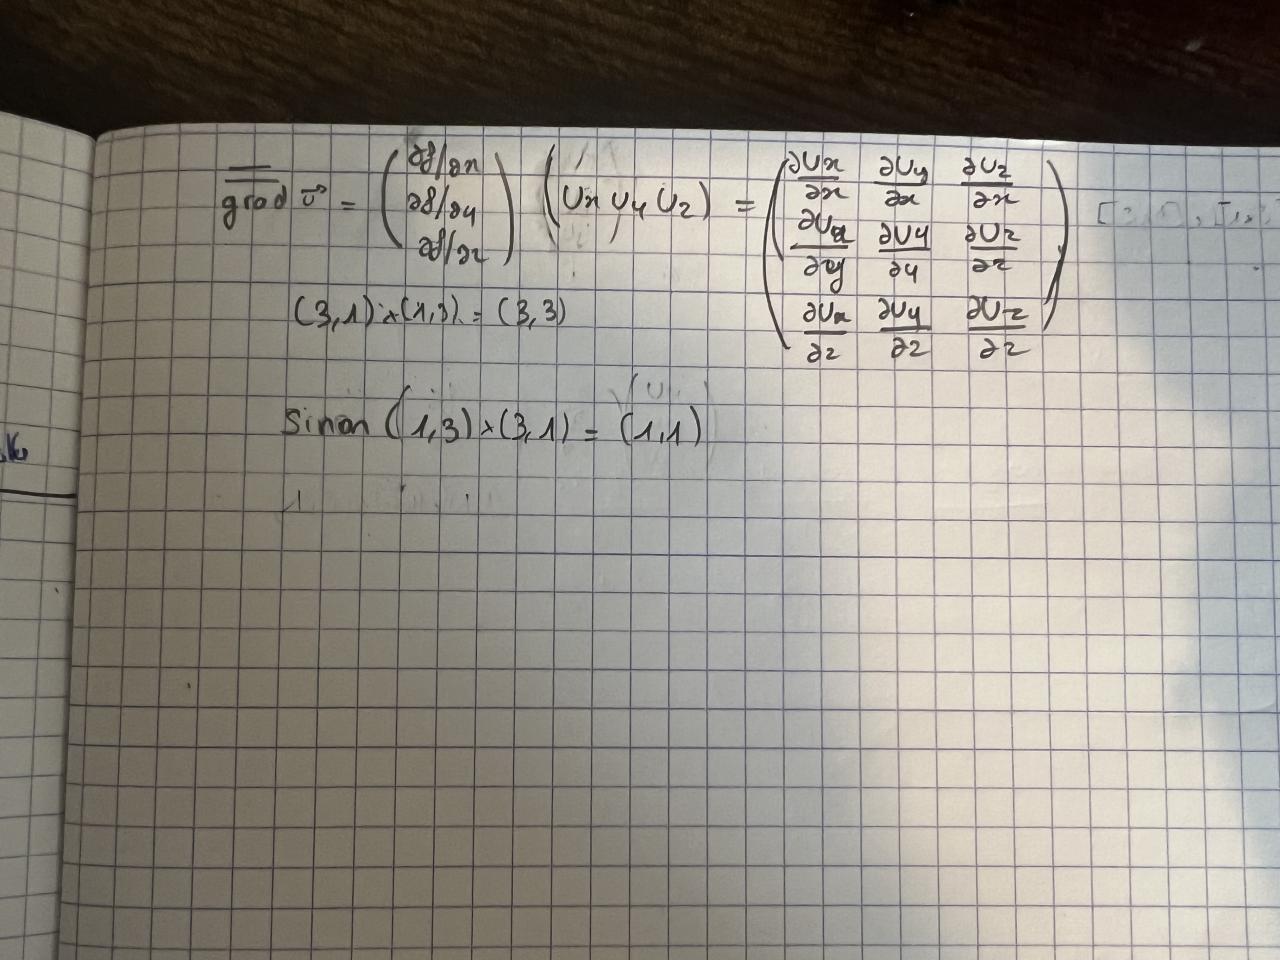 grad v⃗ = (∂f/∂x ∂f/∂y ∂f/∂z) (Ux Uy Uz) = (∂Ux/∂x ∂Uy/∂x ∂Uz/∂x
∂Ux/∂y ∂Uy/∂y ∂Uz/∂z
∂Ux/∂z ∂Uy/∂z ∂Uz/∂z)
(3,1) × (1,3) = (3,3)
Sinon (1,3) × (3,1) = (1,1)